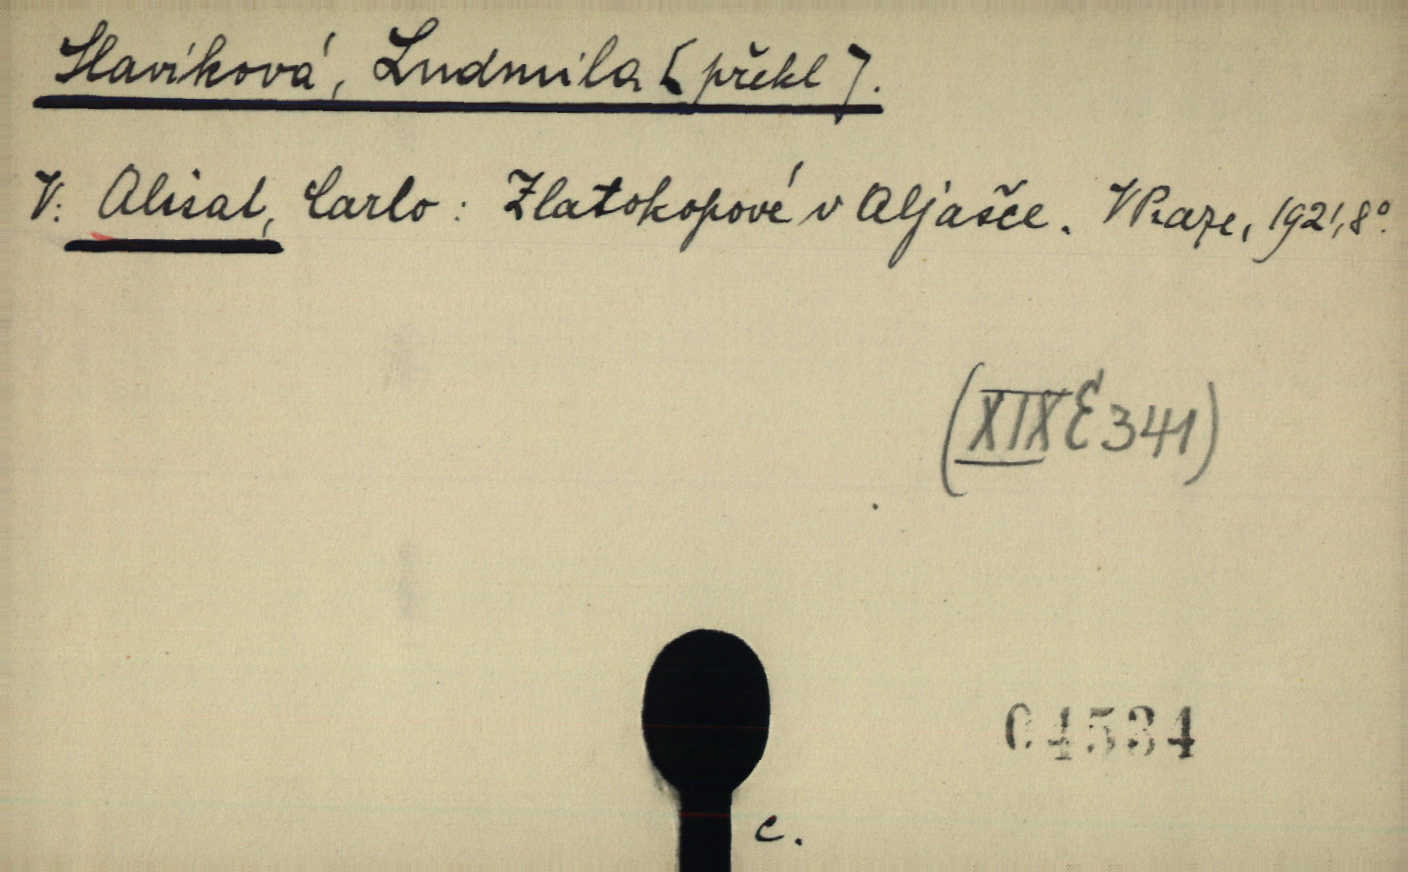 Slavíková, Ludmila [překl].
V: Alisal, Carlo: Zlatokopové v Aljašce. V Praze, 1921, 8°.
(XIX E 341)
04534
c.